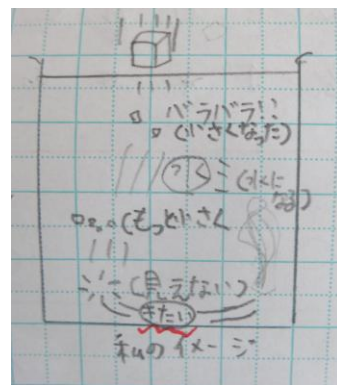 バラバラ!!
(小さくなった)
(水に
なる)
(もっと小さく
(見えない)
きたい
私のイメージ